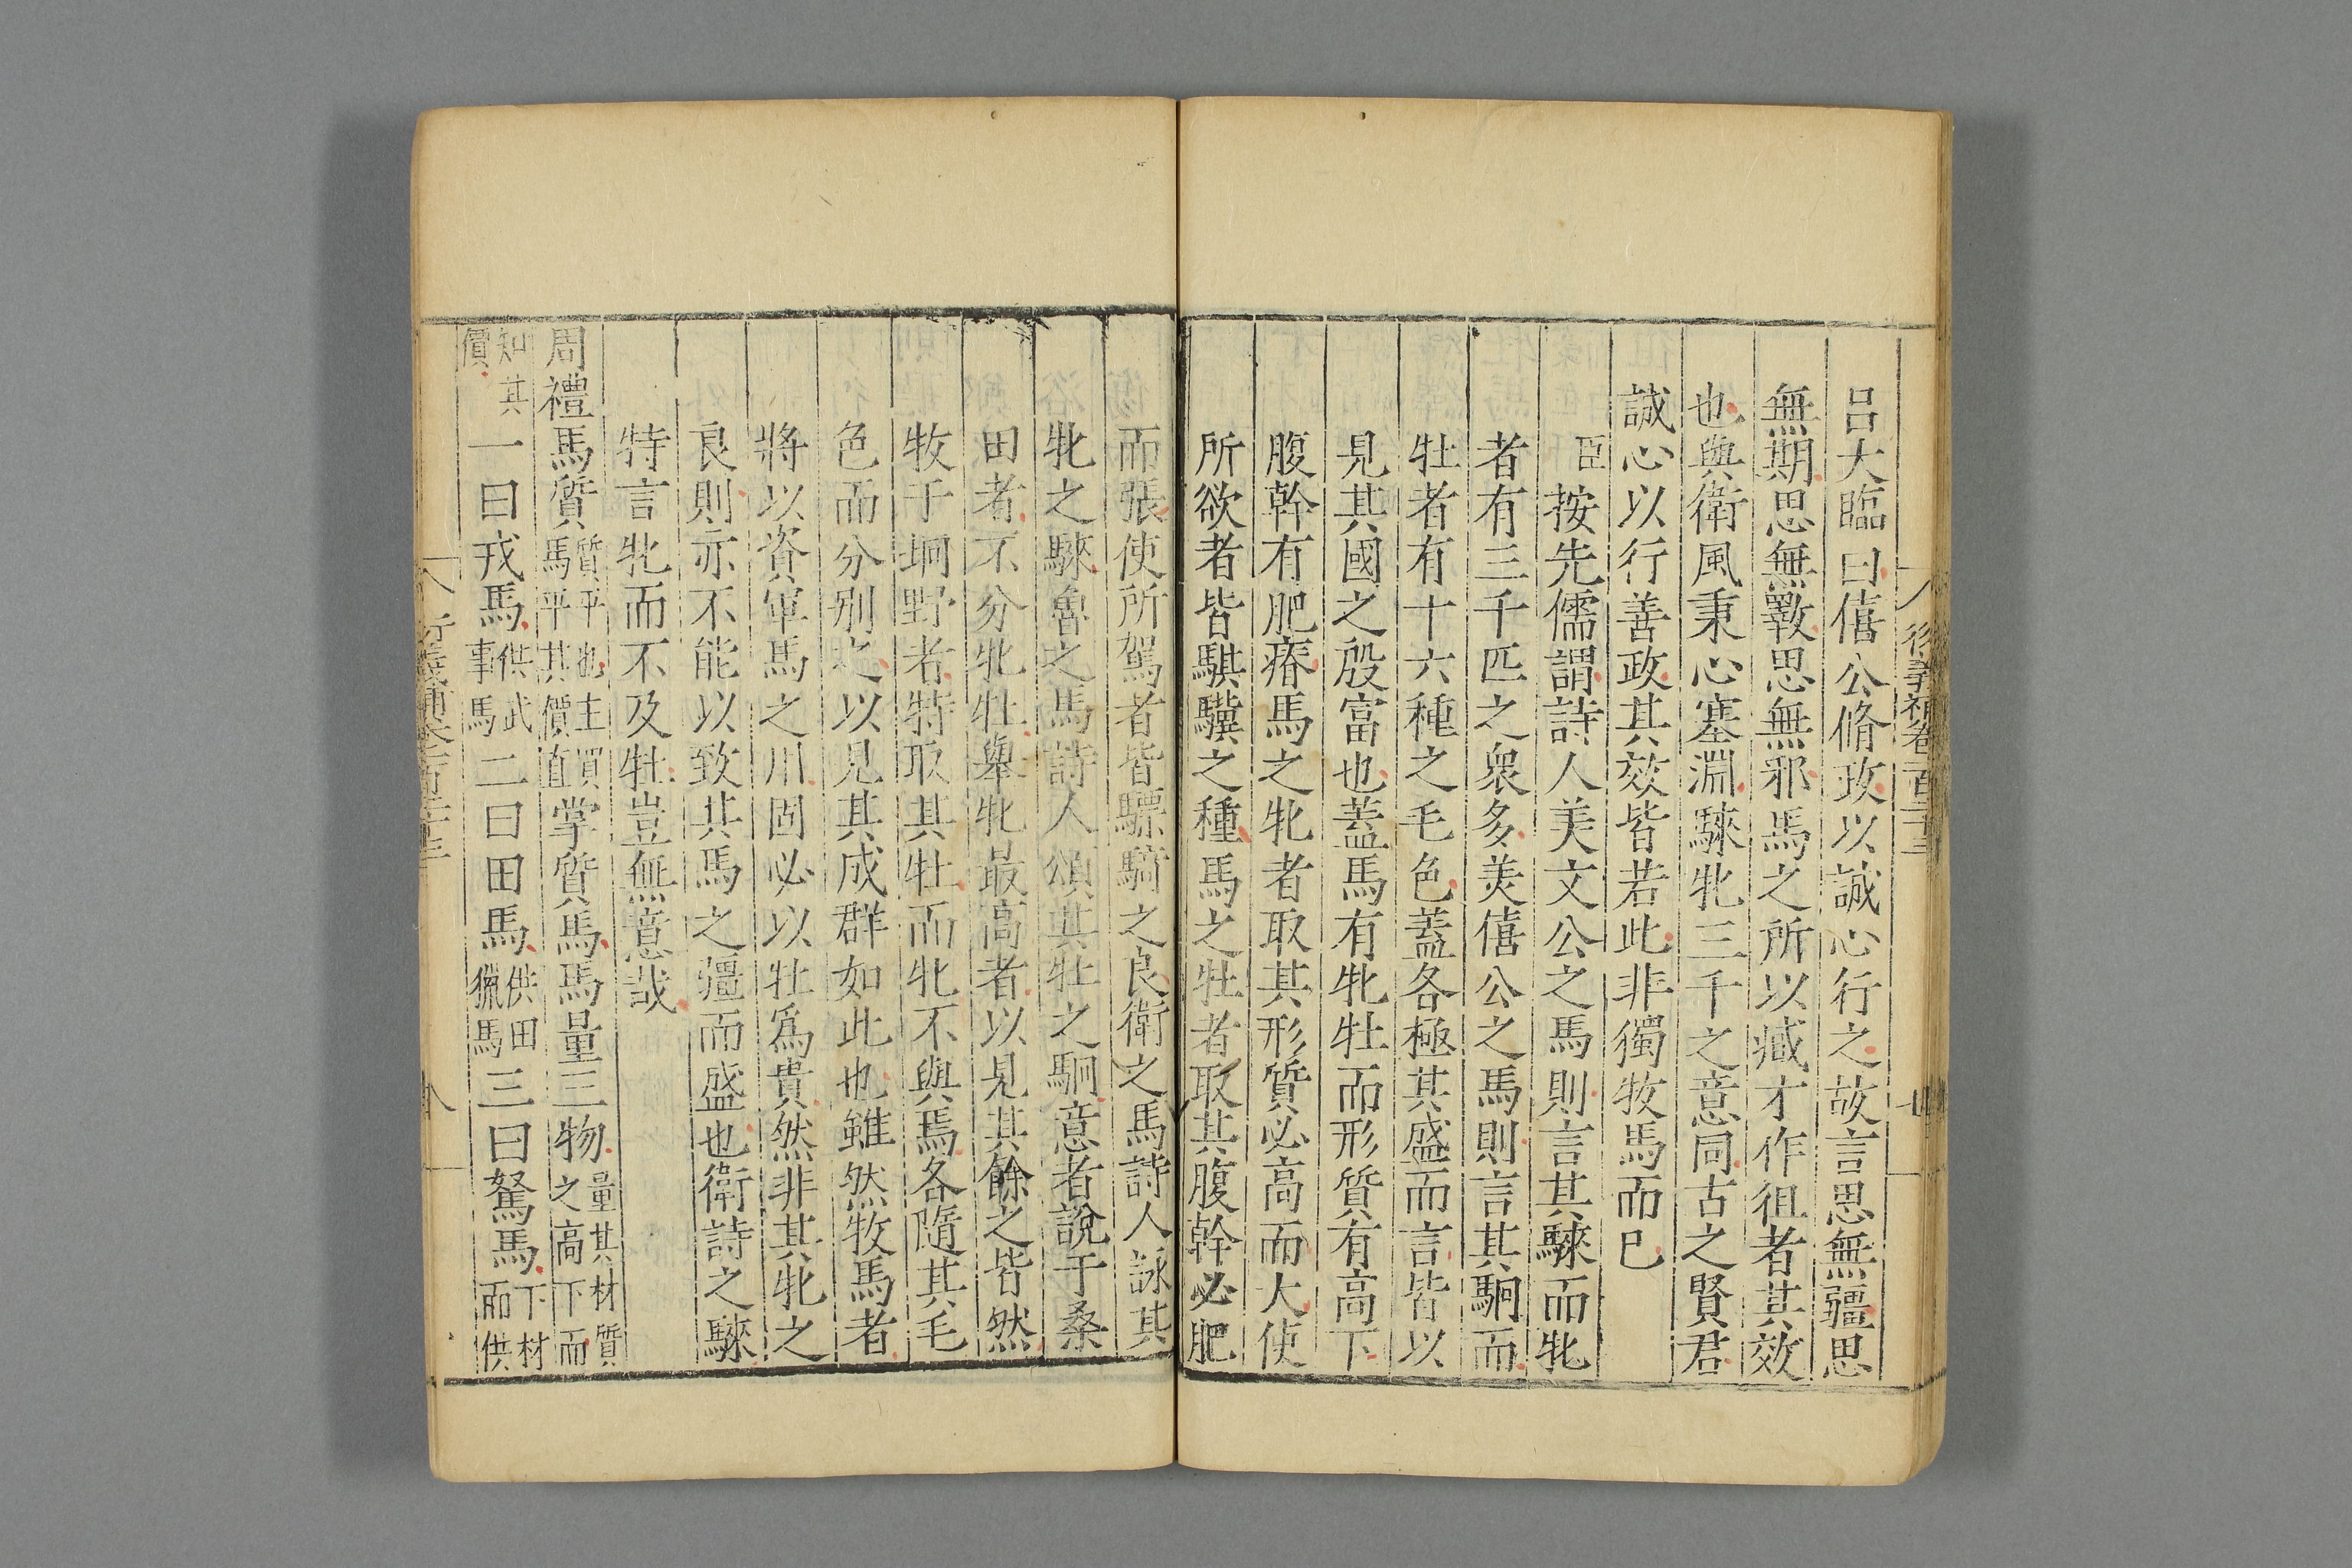 呂大臨曰僖公脩政以誠心行之故言思無疆思
無期思無斁思無邪馬之所以臧才作徂者其效
也與衛風秉心塞淵騋牝三千之意同古之賢君
誠心以行善政其效皆若此非獨牧馬而已
臣按先儒謂詩人美文公之馬則言其騋而牝
者有三千匹之衆多美僖公之馬則言其駉而
牡者有十六種之毛色蓋各極其盛而言皆以
見其國之殷富也蓋馬有牝牡而形質有高下
腹幹有肥瘠馬之牝者取其形質必高而大使
所欲者皆騏驥之種馬之牡者取其腹幹必肥
而張使所駕者皆驃騎之良衛之馬詩人詠其
牝之騋魯之馬詩人頌其牡之駉意者說于桑
田者不分牝牡舉牝最高者以見其餘之皆然
牧于坰野者特取其牡而牝不與焉各隨其毛
色而分别之以見其成群如此也雖然牧馬者
將以資軍馬之用固必以牡爲貴然非其牝之
良則亦不能以致其馬之彊而盛也衛詩之騋
特言牝而不及牡豈無意哉
周禮馬質質平也主買馬平其價直掌質馬馬量三物量其材質之高下而
知其價一曰戎馬供武事馬二曰田馬供田獵馬三曰駑馬下材而供